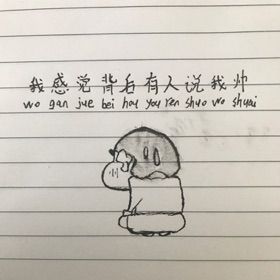 我感觉背后有人说我帅
wo gan jue bei hou you ren shuo wo shuai